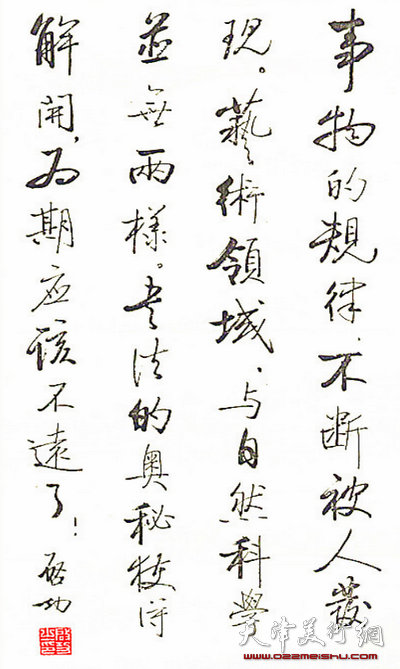 事物的規律、不断被人發
現。藝術領域、与自然科學
並無兩樣。书法的奥秘被
解開，为期应该不遠了！
啓功
天津美術網
www.022meishu.com